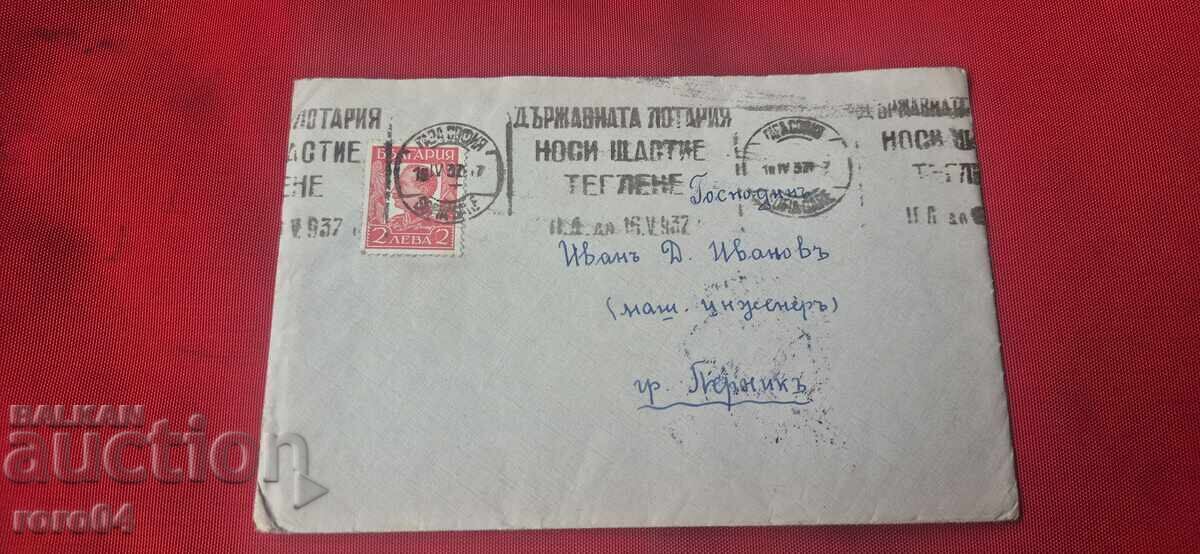 ЛОТАРИЯ
АСТИЕ
ЕНЕ
V.937
БЪЛГАРИЯ
2 ЛЕВА 2
IV 37
ДЪРЖАВНАТА ЛОТАРИЯ
НОСИ ЩАСТИЕ
ТЕГЛЕНЕ
до 16.V.937
IV 37
ДЪРЖАВНАТА
НОСИ
до
Господинъ
Иванъ Д. Ивановъ
(маш. инженеръ)
гр. Перникъ
BALKAN
auction
roro64